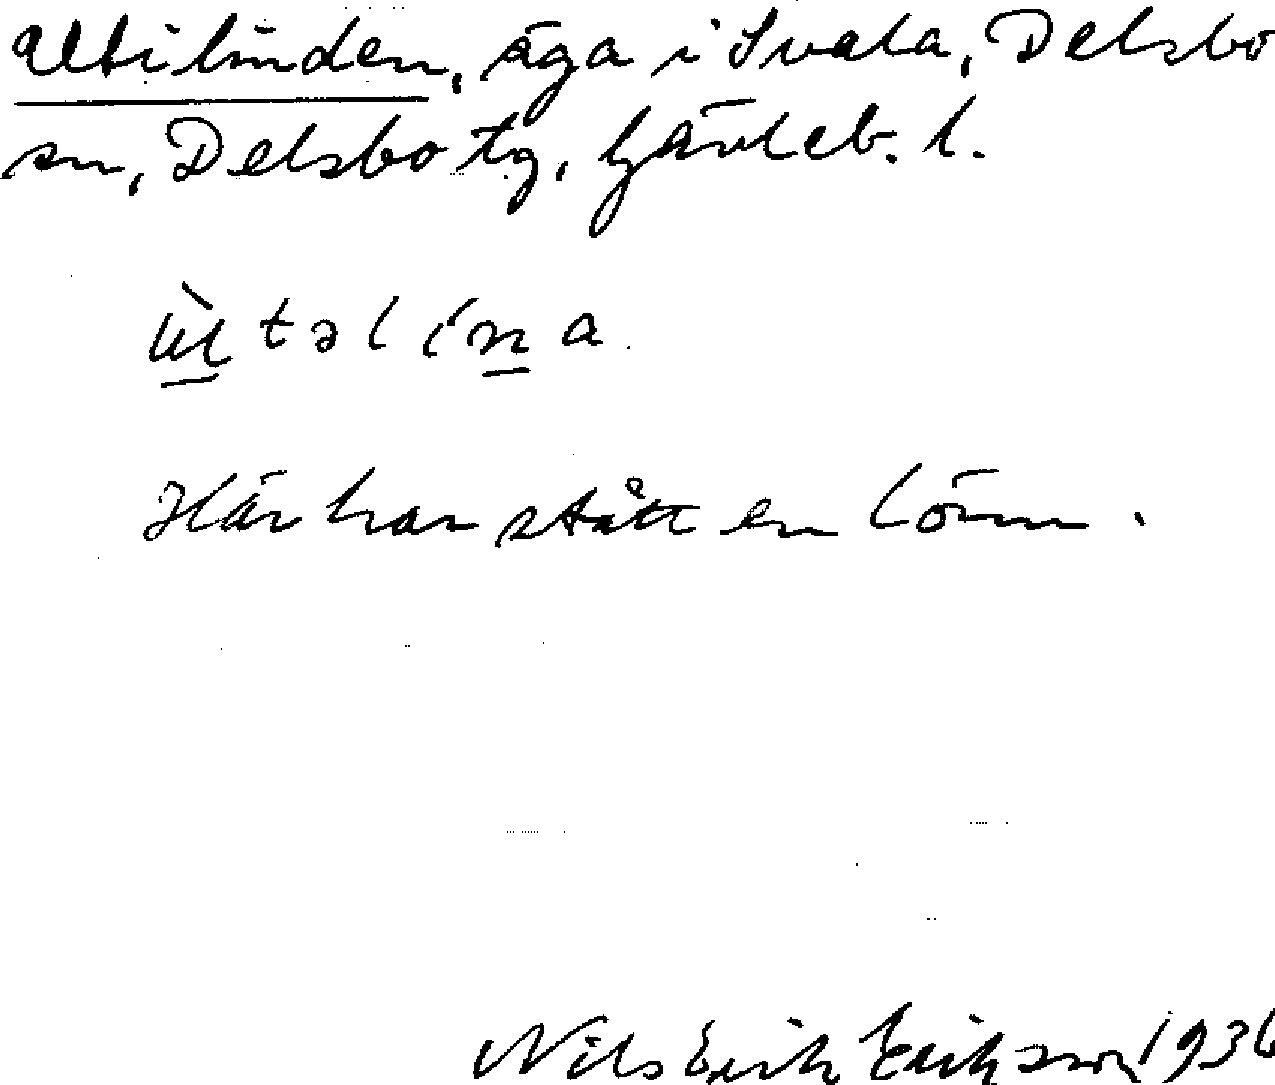 Ultilinden, äga i Svala, Delsbo
sn, Delsbo tg, Gävleb. l.
ùltəlína
Här har stått en lönn.
Nils Erik Erikson 1936